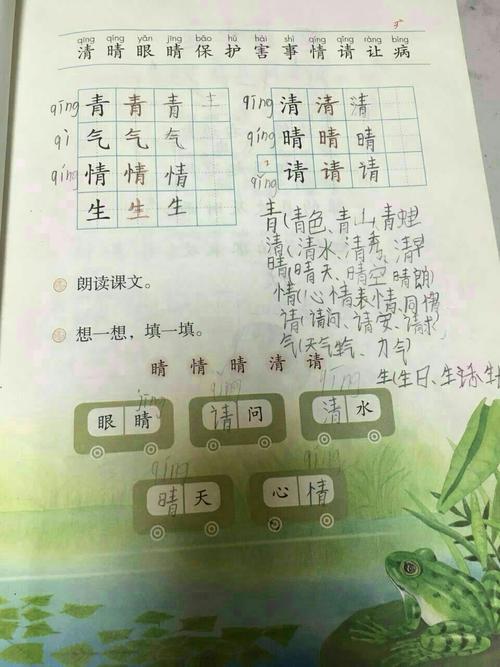 疒
qīng qíng yǎn jīng bǎo hù hài shì qíng qǐng ràng bìng
清 晴 眼 睛 保 护 害 事 情 请 让 病
qīng 青 青 青
qì 气 气 气
qíng 情 情 情
生 生 生
qīng 清 清 清
qíng 晴 晴 晴
qǐng 请 请 请
青(青色、青山、青蛙)
清(清水、清秀、清早
晴(晴天、晴空、晴朗)
情(心情、表情、同情
请(请问、请安、请求)
气(天气、生气、力气)
生(生日、生活、生
朗读课文。
想一想,填一填。
睛 情 晴 清 请
jīng
眼 睛
qǐng
请 问
qīng
清 水
qíng
晴 天
qíng
心 情